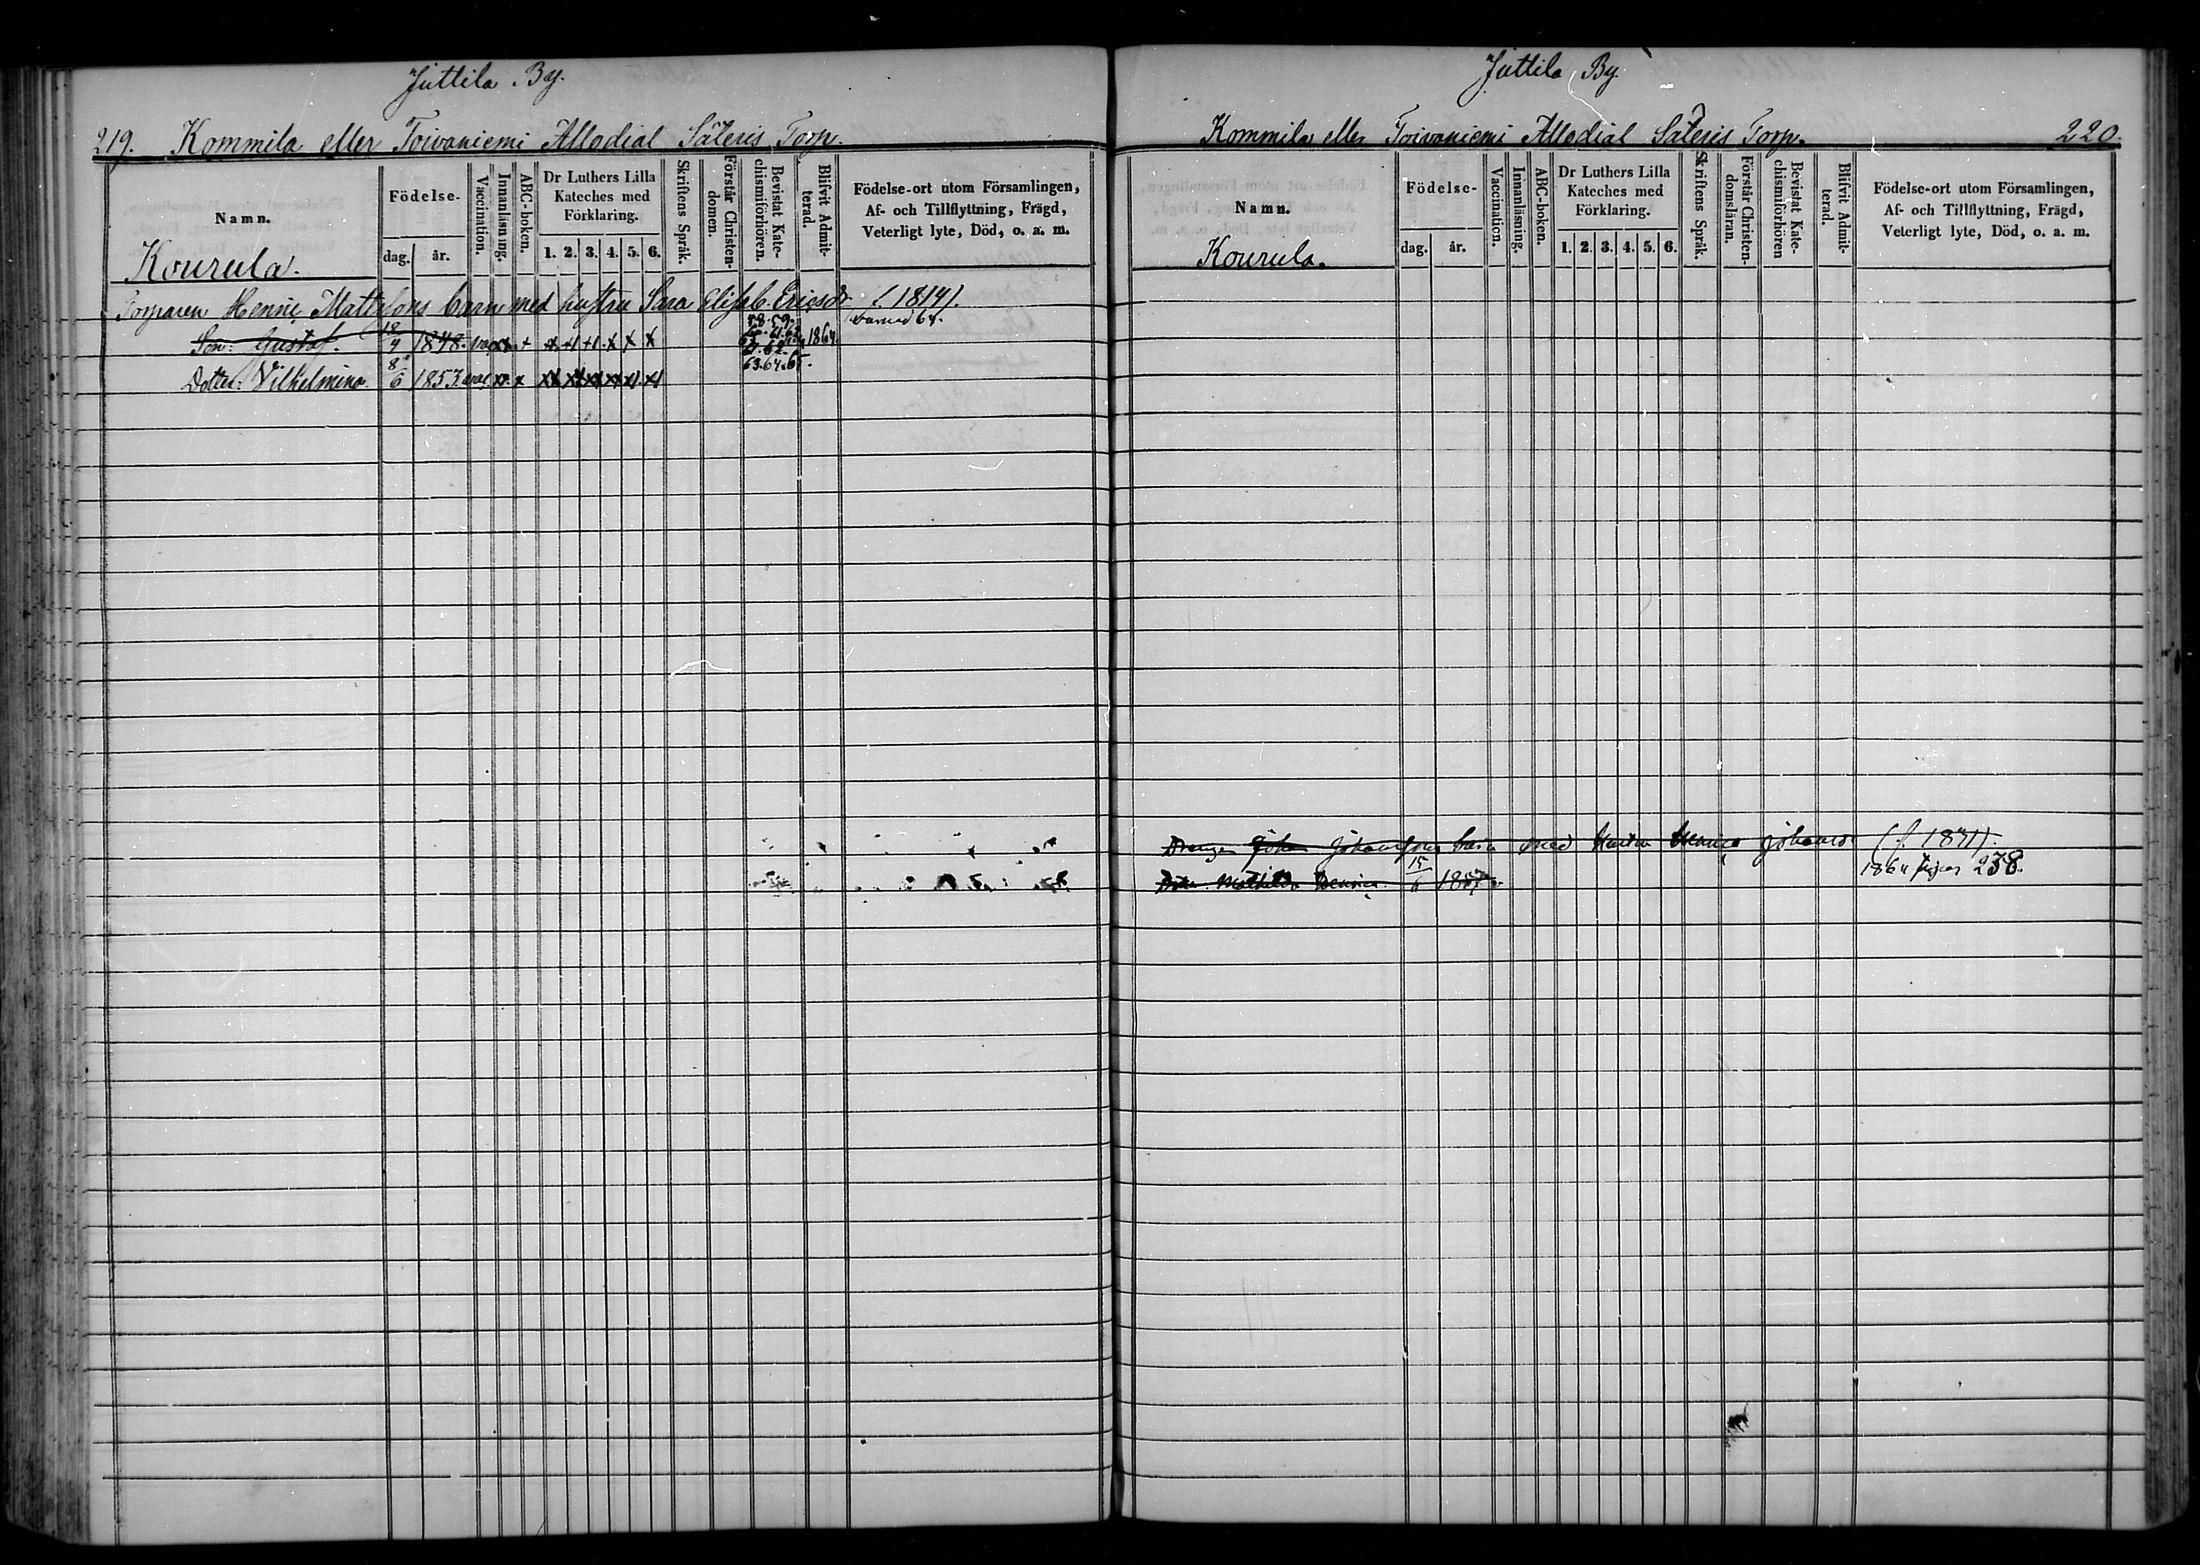 Juttila By.
219. Kommila eller Toivoniemi Allodial Säteris Torp.
Namn.
Födelse-
dag.
år.
Vaccination.
Innanläsning.
ABC-boken.
Dr Luthers Lilla
Kateches med
Förklaring.
1. 2. 3. 4. 5. 6.
Skriftens Språk.
Förstår Christen-
domen.
Bevistat Kate-
chismiförhören.
Blifvit Admit-
terad.
Födelse-ort utom Församlingen,
Af- och Tillflyttning, Frägd,
Veterligt lyte, Död, o. a. m.
Kourula.
Torparen Henric Mattssons barn med hustru Sara Elisab. Ericsdr (1814).
58. 59.
Son: Gustaf. 18/4 1848. + x +1 +1 x x x 1864.
63. 64. 65.
Dotter: Vilhelmina 8/6 1853.
Juttila By.
Kommila eller Toivoniemi Allodial Säteris Torp. 220.
Namn.
Födelse-
dag.
år.
Vaccination.
Innanläsning.
ABC-boken.
Dr Luthers Lilla
Kateches med
Förklaring.
1. 2. 3. 4. 5. 6.
Skriftens Språk.
Förstår Christen-
domsläran.
Bevistat Kate-
chismiförhören
Blifvit Admit-
terad.
Födelse-ort utom Församlingen,
Af- och Tillflyttning, Frägd,
Veterligt lyte, Död, o. a. m.
Kourula.
Drengen Johan Johanssons barn med Hustru Henrica Johansdr (f. 1831).
Dottr Mathilda Henrica. 15/6 1857. 238.